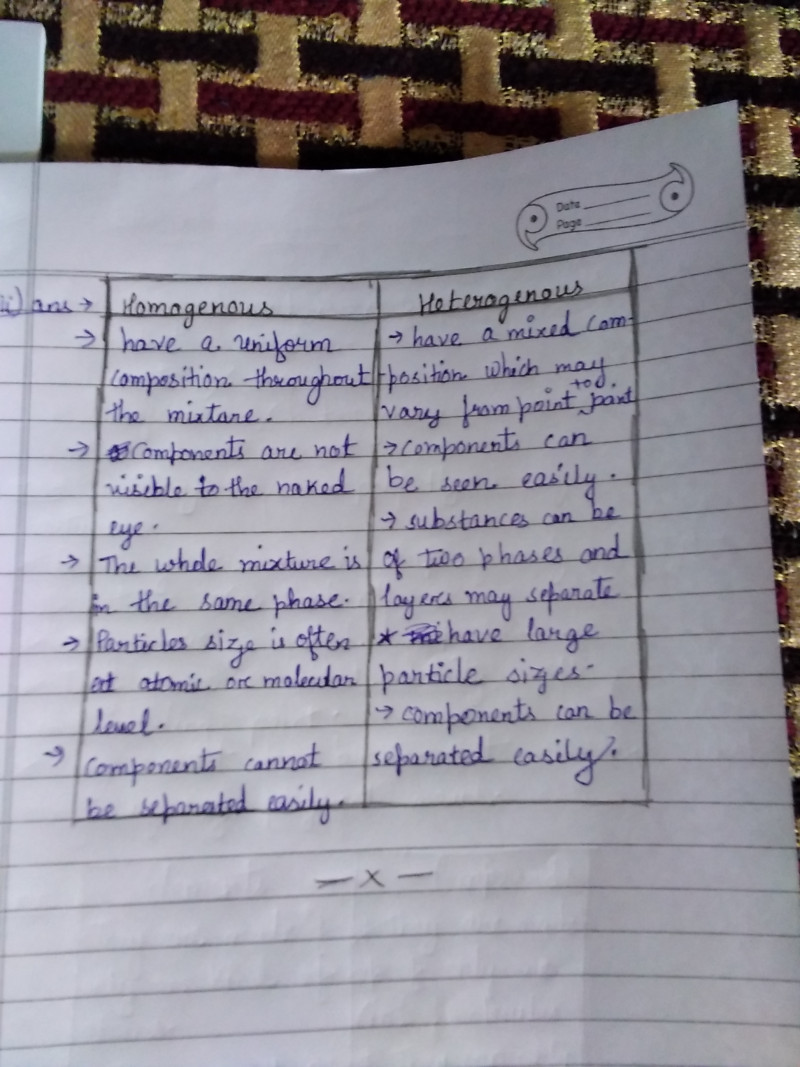 Date
Page
ii) ans → Homogenous
→ have a uniform
composition throughout
the mixture.
→ Components are not
visible to the naked
eye.
→ The whole mixture is
in the same phase.
→ Particles size is often
at atomic or molecular
level.
→ Components cannot
be separated easily.
Heterogenous
→ have a mixed com-
position which may
vary from point to point.
→ components can
be seen easily.
→ substances can be
of two phases and
layers may separate
* have large
particle sizes.
→ components can be
separated easily.
— x —